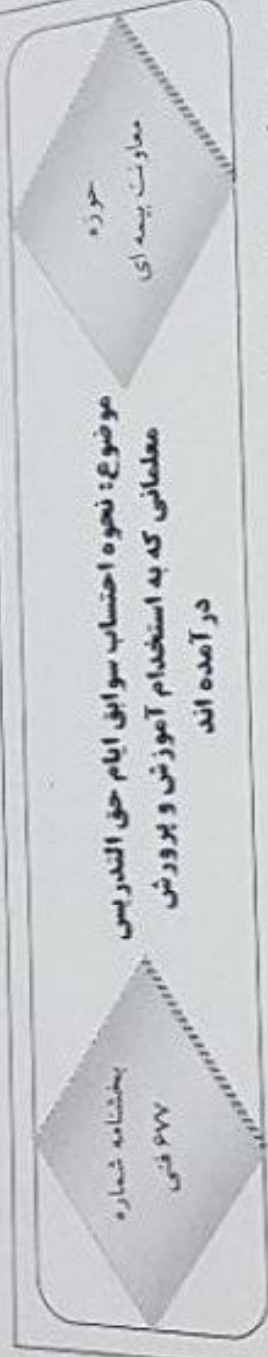 حوزه
معاونت بیمه ای
موضوع: نحوه احتساب سوابق ایام حق التدریس
معلمانی که به استخدام آموزش و پرورش
در آمده اند
بخشنامه شماره
۶۷۷ فنی